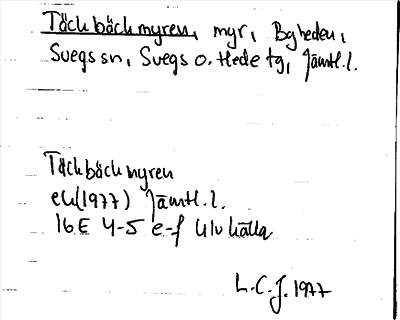 Täckbäckmyren, myr, Bgheden,
Svegs sn, Svegs o. Hede tg, Jämtl. l.
Täckbäckmyren
ek (1977) Jämtl. l.
16E 4-5 e-f Ulvkälla
L.C.J. 1977